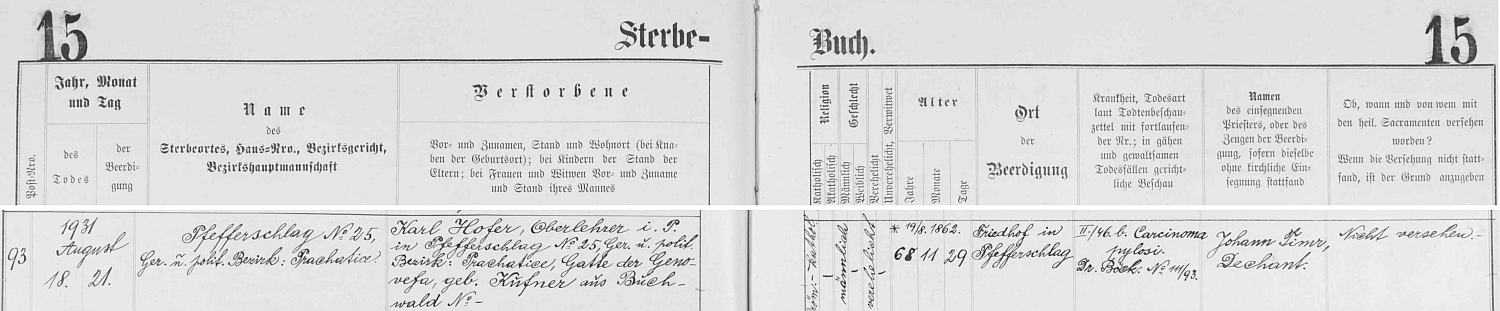 15
Sterbe-
Buch.
15
Post-Nro.
Jahr, Monat
und Tag
des
Todes
der
Beerdi-
gung
Name
des
Sterbeortes, Haus-Nro., Bezirksgericht,
Bezirkshauptmannschaft
Verstorbene
Vor- und Zunamen, Stand und Wohnort (bei Kna-
ben der Geburtsort); bei Kindern der Stand der
Eltern; bei Frauen und Witwen Vor- und Zuname
und Stand ihres Mannes
Religion
Katholisch
Akatholisch
Geschlecht
Männlich
Weiblich
Verehelicht
Unverehelicht, Verwitwet
Alter
Jahre
Monate
Tage
Ort
der
Beerdigung
Krankheit, Todesart
laut Todtenbeschau-
zettel mit fortlaufen-
der Nr.; in gähen
und gewaltsamen
Todesfällen gericht-
liche Beschau
Namen
des einsegnenden
Priesters, oder des
Zeugen der Beerdi-
gung, sofern dieselbe
ohne kirchliche Ein-
segnung stattfand
Ob, wann und von wem mit
den heil. Sacramenten versehen
worden?
Wenn die Versehung nicht statt-
fand, ist der Grund anzugeben
93
1931
August
18. 21.
Pfefferschlag No 25,
Ger. u. polit. Bezirk: Prachatice.
Karl Hofer, Oberlehrer i. P.
in Pfefferschlag No 25, Ger. u. polit.
Bezirk: Prachatice, Gatte der Geno-
vefa, geb. Kufner aus Buch-
wald No -
röm.-kathol.
männlich
verehelicht
* 19/8. 1862.
68 11 29
Friedhof in
Pfefferschlag
II./46. b. Carcinoma
pylosi.
Dr. Böck. No 111/93.
Johann
Dechant.
Nicht versehen.-